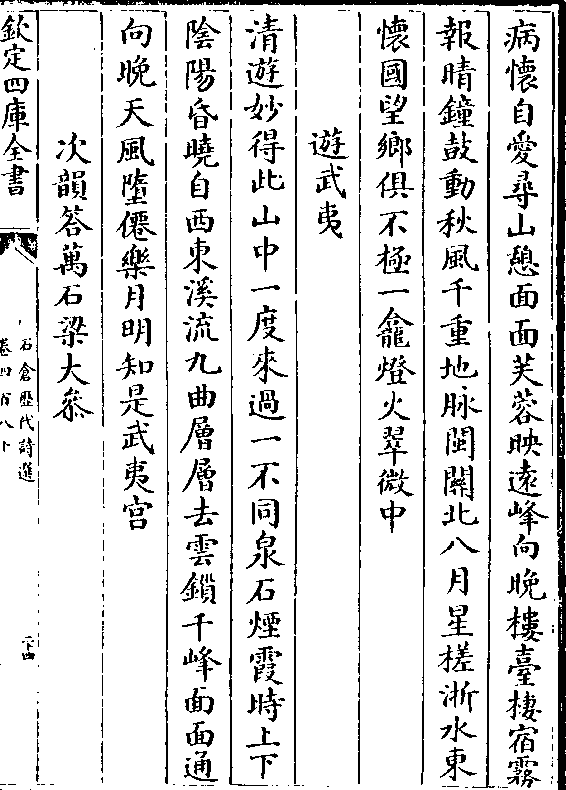 病懐自愛尋山憩面面芙蓉映逺峰向晚樓臺棲宿霧
報晴鐘鼓動秋風千重地脉閩闗北八月星槎浙水東
懐國望鄉俱不極一龕燈火翠微中
遊武夷
清遊妙得此山中一度來過一不同泉石煙霞時上下
陰陽昏曉自西東溪流九曲層層去雲鎖千峰面面通
向晚天風墮僊樂月明知是武夷宫
次韻答萬石梁大叅
欽定四庫全書
石倉歴代詩選
卷四百八十
二十四